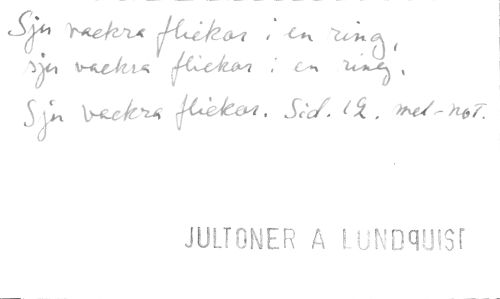 Sju vackra flickor i en ring,
sju vackra flickor i en ring.
Sju vackra flickor. Sid. 12. mel-not.
JULTONER A LUNDQUIST